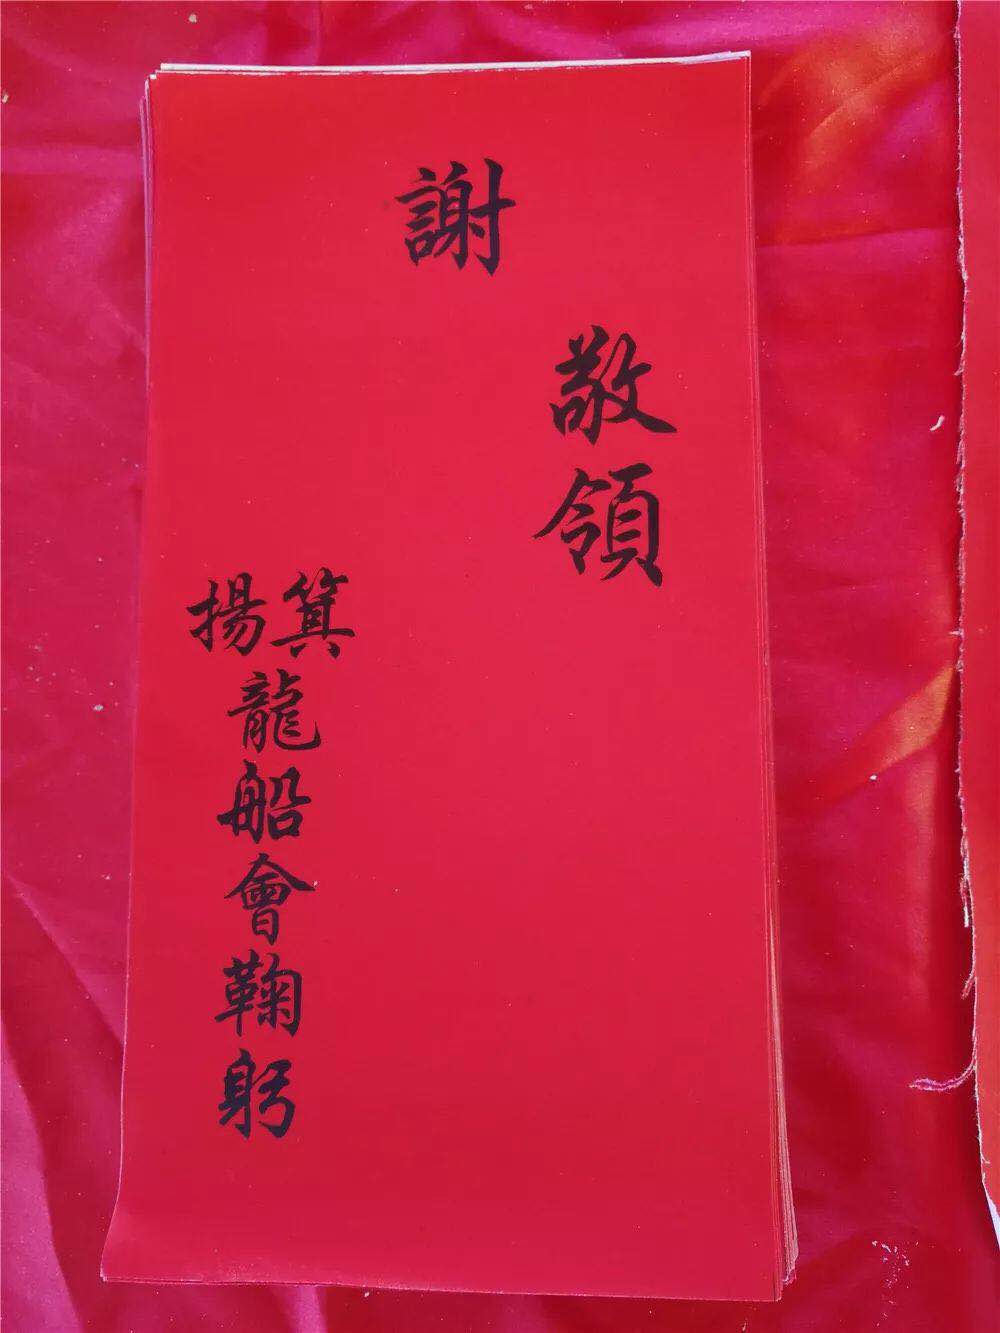 敬領
謝
箕揚龍船會鞠躬